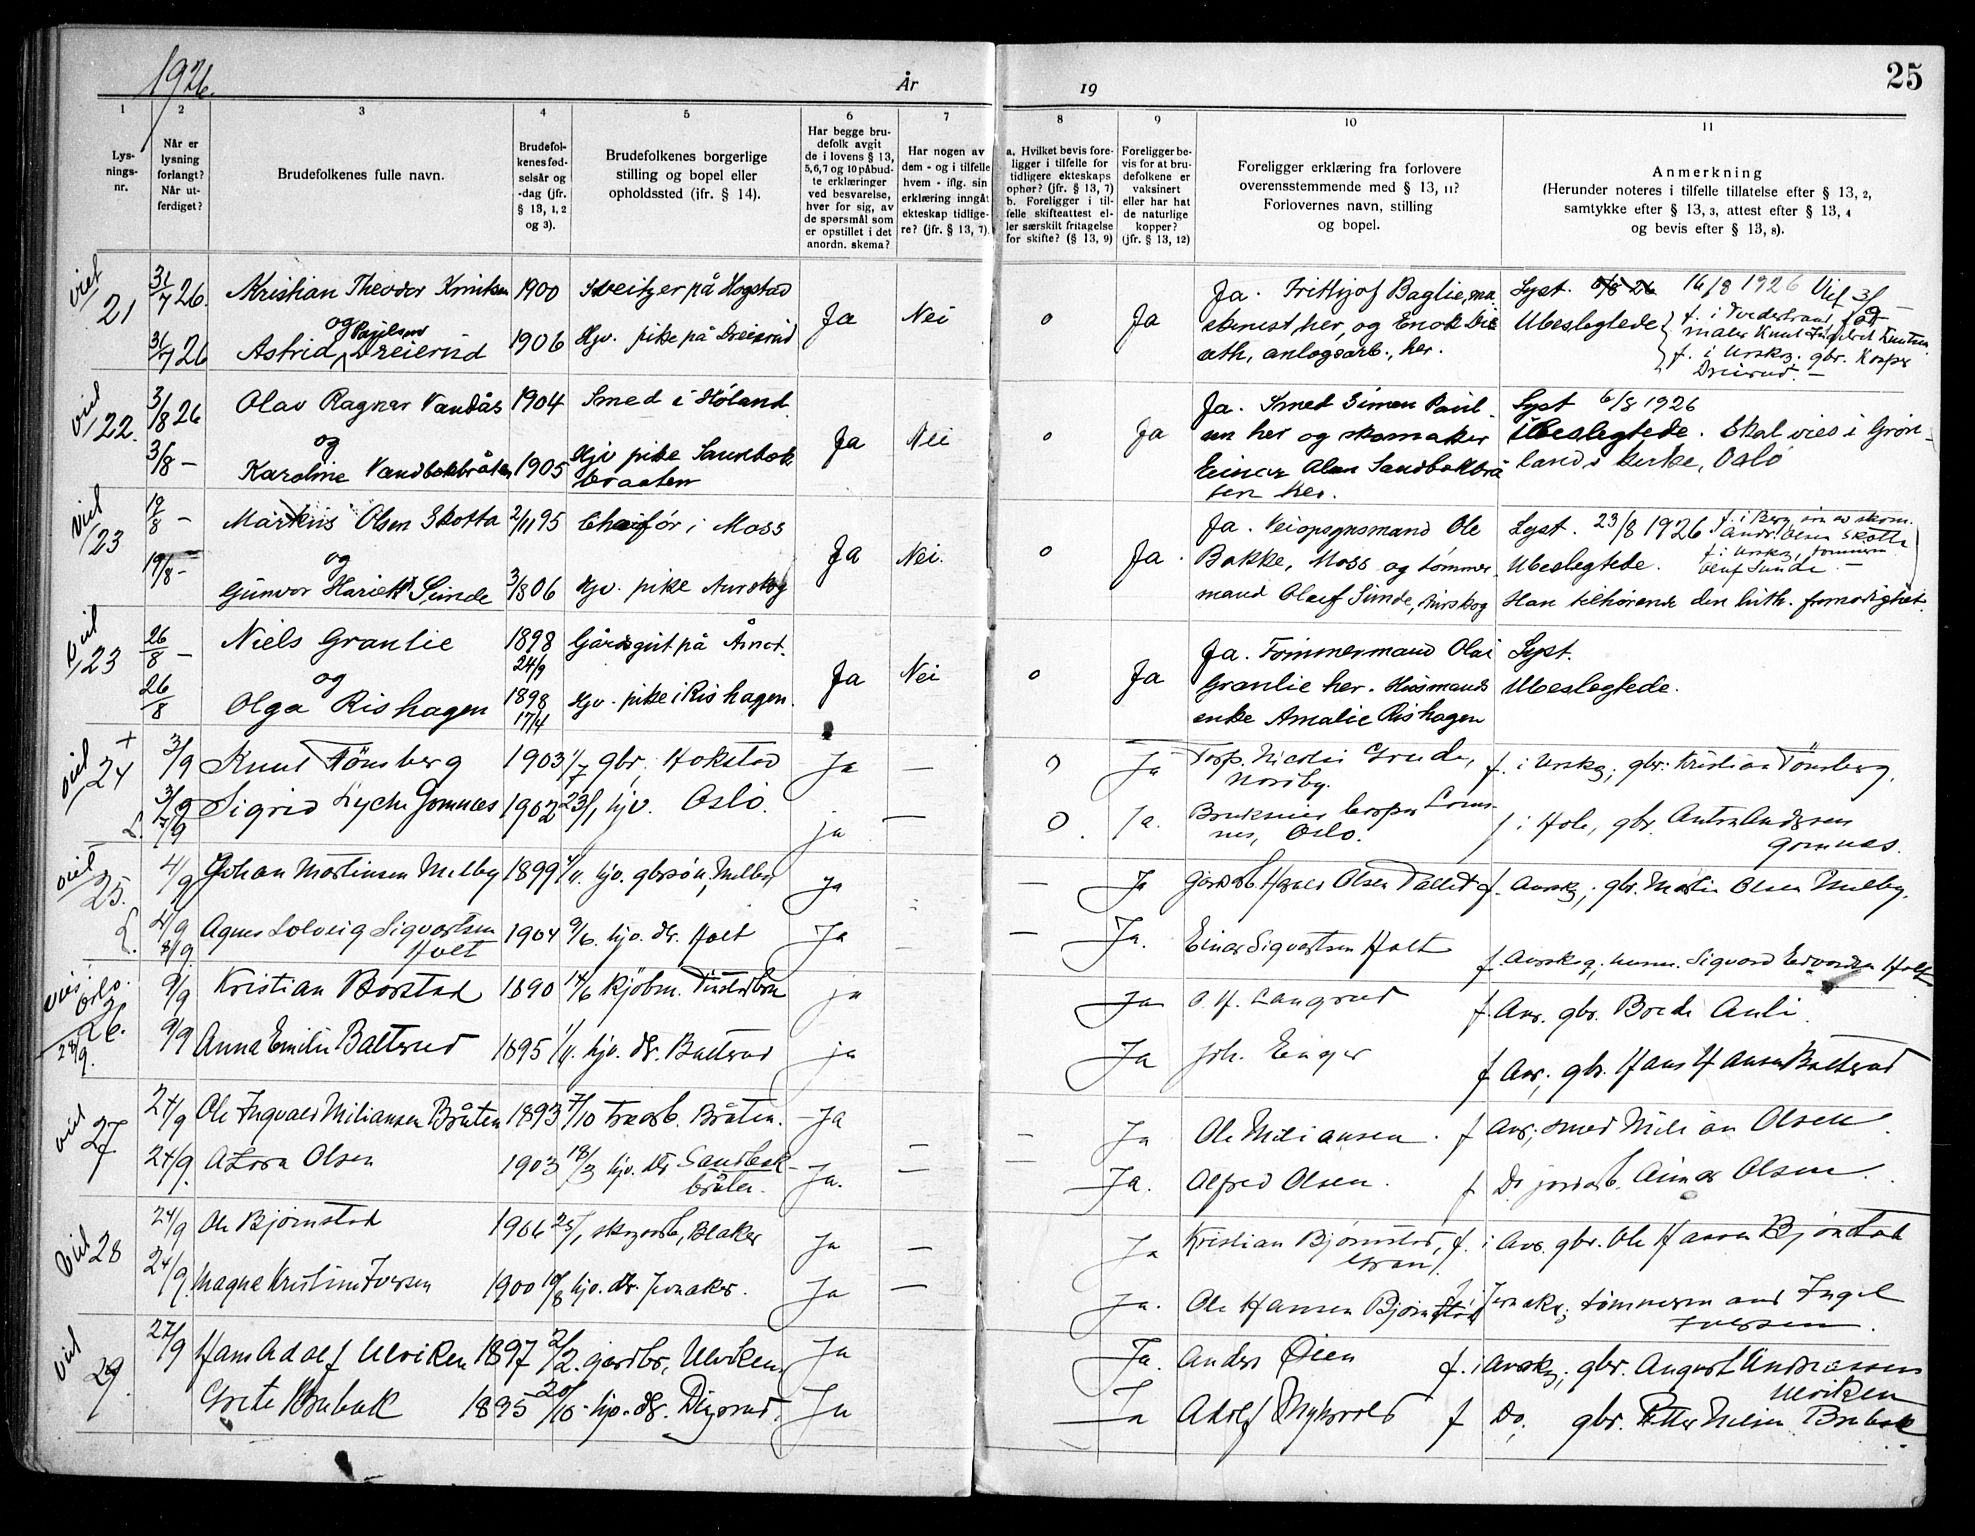 1926.
År
19
25
1
2
3
4
5
6
7
8
9
10
11
Lys-
nings-
nr.
Når er
lysning
forlangt?
Når ut-
ferdiget?
Brudefolkenes fulle navn.
Brudefol-
kenes fød-
selsår og
-dag (jfr.
§ 13, 1, 2
og 3).
Brudefolkenes borgerlige
stilling og bopel eller
opholdssted (jfr. § 14).
Har begge bru-
defolk avgit
de i lovens § 13,
5,6,7 og 10 påbud-
te erklæringer
ved besvarelse,
hver for sig, av
de spørsmål som
er opstillet i det
anordn. skema?
Har nogen av
dem - og i tilfelle
hvem - iflg. sin
erklæring inngåt
ekteskap tidlige-
re? (jfr. § 13, 7).
a. Hvilket bevis fore-
ligger i tilfelle for
tidligere ekteskaps
ophør? (jfr. § 13, 7)
b. Foreligger i til-
felle skifteattest el-
ler særskilt fritagelse
for skifte? (§ 13, 9)
Foreligger be-
vis for at bru-
defolkene er
vaksinert
eller har hat
de naturlige
kopper?
(jfr. § 13, 12)
Foreligger erklæring fra forlovere
overensstemmende med § 13, 11?
Forlovernes navn, stilling
og bopel.
Anmerkning
(Herunder noteres i tilfelle tillatelse efter § 13, 2,
samtykke efter § 13, 3, attest efter § 13, 4
og bevis efter § 13, 8).
viet
21
31/7 26.
Kristian Theodor Knutsen 1900 Sveitzer på Hogstad
og Paulsen
31/7 26 Astrid Dreierud 1906 Hjv. pike på Dreierud
Ja Nei
0 Ja
Ja. Frithjof Baglie, ma-
skinist, her, og Enok
anlægsarb., her.
Lyst. 16/8 1926 Viet
Ubeslegtede
f. i Aursk. gbr.
viet
22.
3/8 26 Olav Ragnar Vandås 1904 Smed i Høland.
og
3/8 — Karoline 1905 Hjv pike Sandbæk
braaten
Ja Nei
0 Ja
Ja. Smed Simen Paul-
sen her og skomaker
Einar Olsen Sandbækbrå
ten her.
Lyst 6/8 1926
Ubeslegtede. Skal vies i Grøn-
lands kirke, Oslo
viet
23
19/8 — Markus Olsen Skotta 2/11 95 Chaufør i Moss
og
19/8 — Gunvor Hariett Sunde 3/8 06 Hjv. pike Aurskog
Ja Nei.
0 Ja.
Ja. Veiopsynsmand Ole
Bakke, Moss og tømmer-
mand Olaf Sunde, Aurskog
Lyst. 23/8 1926 f. i Berg, søn av skom.
Andr. Olsen Skotta
f. i Aurskg, tømmerm.
Olaf Sunde. —
Ubeslegtede.
Han tilhørende den luth. frimenighet.
viet
23
26/8 — Niels Granlie 1898 24/9 Gårdsgut på
og
26/8 Olga Rishagen 1898 17/4 Hjv. pike i Rishagen.
Ja Nei
0 Ja
Ja. Tømmermand Olai
Granlie her. Husmands
enke Amalie Rishagen
Lyst.
Ubeslegtede.
viet
24
+
3/9 Knut Tönsberg 1903 1/7 gbr, Hokstad Ja —
3/9 Sigrid Lyche Gomnæs 1902 23/1 hjv. Oslo. ja —
0 Ja Nicolai Grude,
Nordby.
f. i Aurskg; gbr. Kristian Tönsberg.
0. Ja.
Oslo.
f i Hole, gbr. Anton Andersen
Gomnæs.
viet
25.
4/9 Johan Martinsen Melby 1899 hjv. gbrsön, Melby ja
4/9 8/9 Agnes Solveig Sigvartsen
Holt
1904 9/6. hjv. dr. Holt Ja
— Ja Olsen
f. Aurskg; gbr. Martin Olsen Melby.
— Ja. Einar Sigvartsen Holt
f. Aurskog; Sigvard Edvardsen Holt
viet
Oslo.
26.
28/9.
9/9 Kristian Borstad 1890 14/6 kjöbm. ja
9/9 Anna Emilie Batterud 1895 hjv. dr. Batterud ja
Ja O. H. Langrud
f. Aur. gbr. Brede Auli.
Ja Joh. Einger
f. Aur; gbr. Hans Hansen Batterud
viet
27
24/9 Ole Ingvald Miliansen Bråten 1893 7/10 Bråten. Ja
24/9. Azora Olsen 1903 18/3 hjv. dr Sandbæk-
bråten.
Ja. —
— Ja Ole Miliansen. f Aur; smed Milian Olsen.
— Ja. Alfred Olsen. f Do jordarb. Einar Olsen.
viet
28
24/9 Ole Bjørnstad 1906 25/1, skogsarb, Blaker Ja —
24/9. Magna Kristine Iversen 1900 10/8 hjv. dr. Jevnaker. Ja —
Ja Kristian Bjørnstad, f. i Aur. gbr. Ole Hansen Bjørnstad
Ja. Ole Hansen Bjørnstad f. i Jevnaker; tømmermand Ingel
Iversen.
viet
29
27/9 Hans Adolf Ulviken 1897 2/2. gårdbr, Ulviken. Ja
Grete Brubak 1895 20/10. hjv. dr. Digerud. Ja
Ja. Anders Øien f. i Aurskg; gbr. August Andreassen
Ulviken
Ja Adolf Nykvold f Do; gbr. Petter Nilsen Brubak